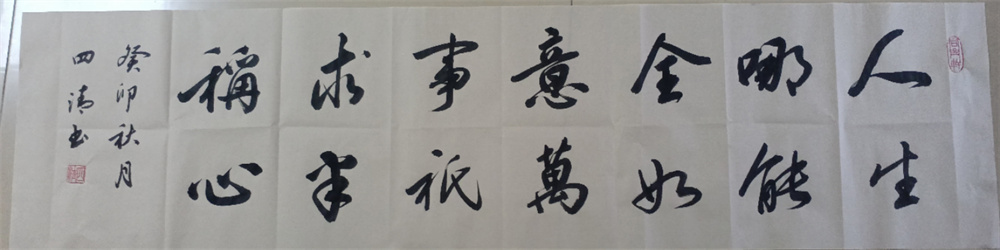 人生
哪能
全如
意萬
事祇
求半
稱心
癸卯秋月
四清书